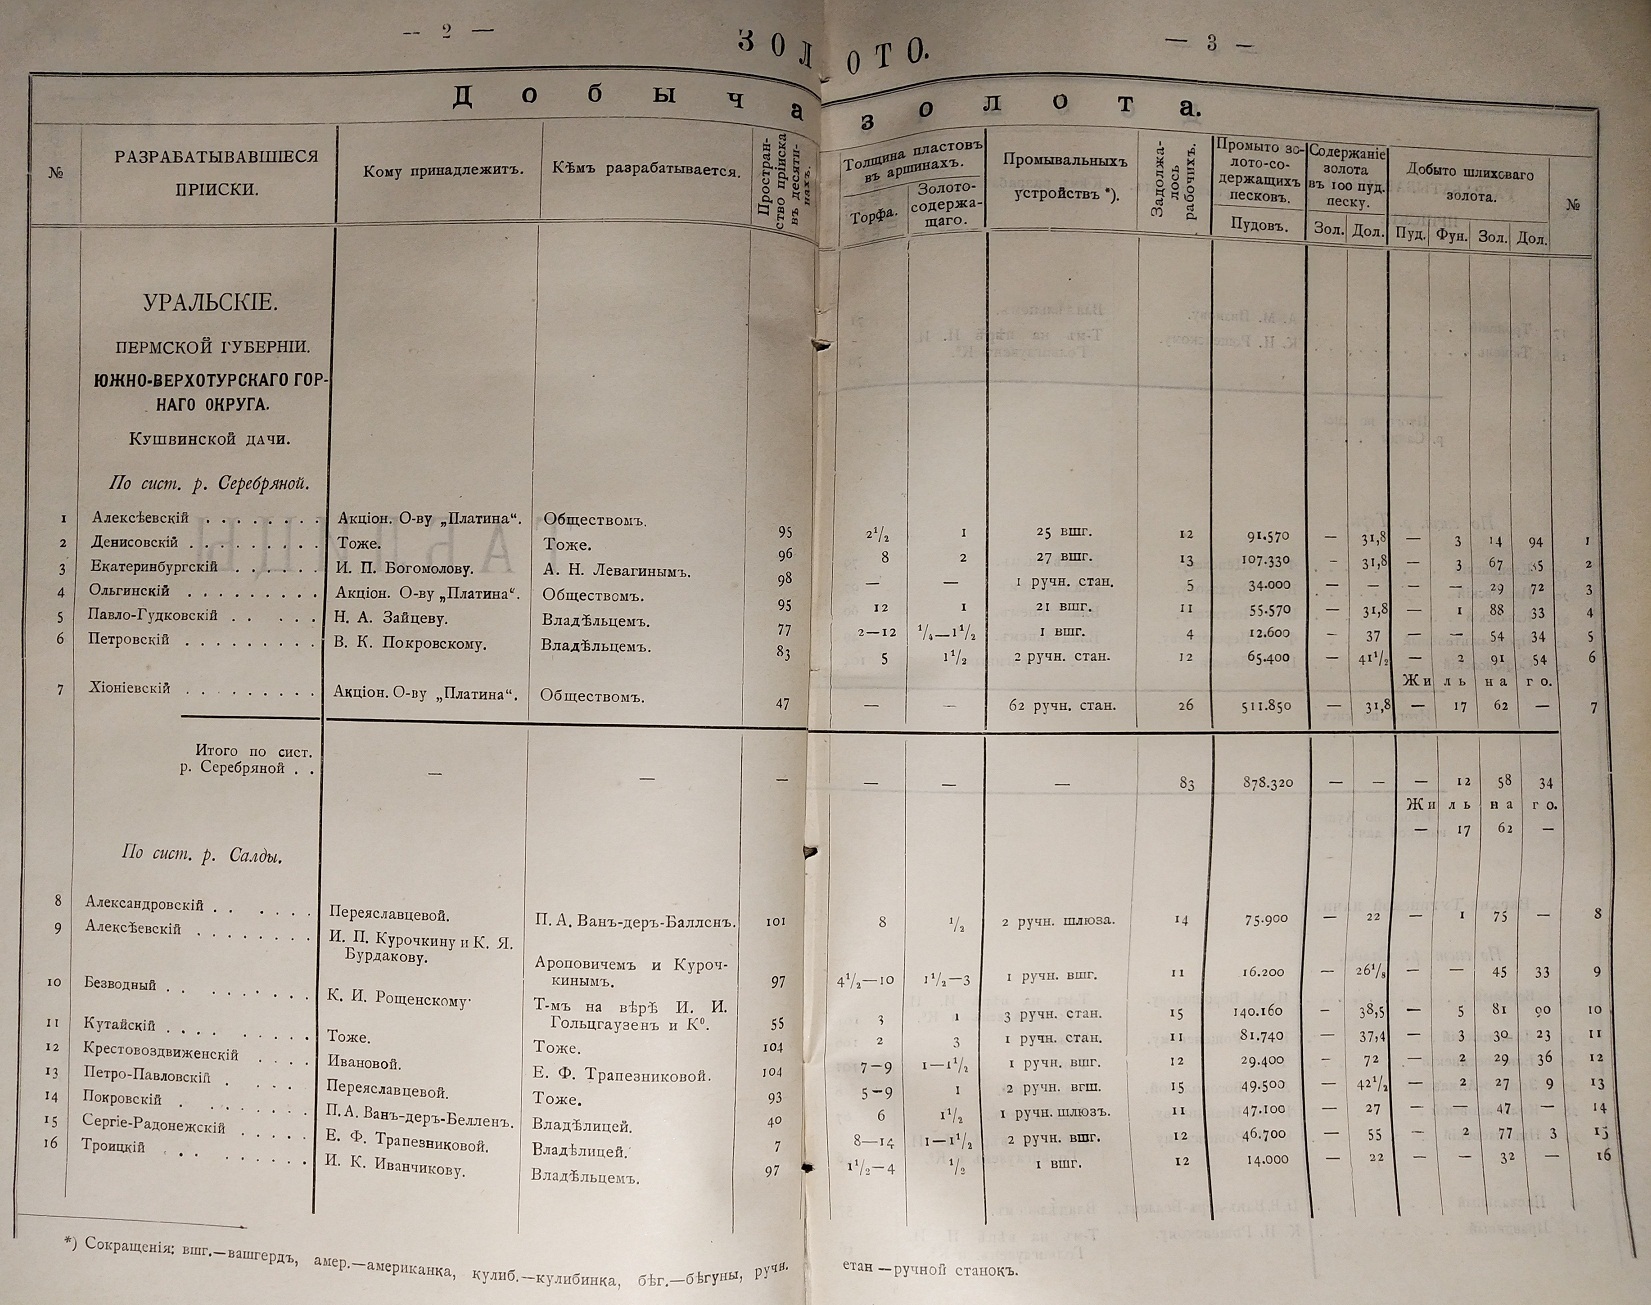 — 2 —
ЗОЛОТО.
— 3 —
Добыча золота.
№
РАЗРАБАТЫВАВШІЕСЯ ПРІИСКИ.
Кому принадлежитъ.
Кѣмъ разрабатывается.
Простран-
ство пріиска
въ десяти-
нахъ.
Толщина пластовъ въ аршинахъ.
Торфа.
Золото-
содержа-
щаго.
Промывальныхъ устройствъ *).
Задолжа-
лось
рабочихъ.
Промыто зо-
лото-со-
держащихъ
песковъ.
Пудовъ.
Содержаніе
золота
въ 100 пуд.
песку.
Зол. Дол.
Добыто шлиховаго золота.
Пуд. Фун. Зол. Дол.
№
УРАЛЬСКІЕ.
ПЕРМСКОЙ ГУБЕРНІИ.
ЮЖНО-ВЕРХОТУРСКАГО ГОР-
НАГО ОКРУГА.
Кушвинской дачи.
По сист. р. Серебряной.
1 Алексѣевскій . . . . . . . . Акціон. О-ву „Платина“. Обществомъ. 95 2½ 1 25 вшг. 12 91.570 — 31,8 — 3 14 94 1
2 Денисовскій . . . . . . . . . Тоже. Тоже. 96 8 2 27 вшг. 13 107.330 — 31,8 — 3 67 35 2
3 Екатеринбургскій . . . . . . И. П. Богомолову. А. Н. Левагинымъ. 98 — — 1 ручн. стан. 5 34.000 — — — — 29 72 3
4 Ольгинскій . . . . . . . . . Акціон. О-ву „Платина“. Обществомъ. 95 12 1 21 вшг. 11 55.570 — 31,8 — 1 88 33 4
5 Павло-Гудковскій . . . . . Н. А. Зайцеву. Владѣльцемъ. 77 2—12 ¼—1½ 1 вшг. 4 12.600 — 37 — — 54 34 5
6 Петровскій . . . . . . . . . В. К. Покровскому. Владѣльцемъ. 83 5 1½ 2 ручн. стан. 12 65.400 — 41½ — 2 91 54 6
Жильнаго.
7 Хіоніевскій . . . . . . . . . Акціон. О-ву „Платина“. Обществомъ. 47 — — 62 ручн. стан. 26 511.850 — 31,8 — 17 62 — 7
Итого по сист.
р. Серебряной . . — — — — — — 83 878.320 — — — 12 58 34
Жильнаго.
— 17 62 —
По сист. р. Салды.
8 Александровскій . . . . . . Переяславцевой. П. А. Ванъ-деръ-Балленъ. 101 8 ½ 2 ручн. шлюза. 14 75.900 — 22 — 1 75 — 8
9 Алексѣевскій . . . . . . . . И. П. Курочкину и К. Я.
Бурдакову. Ароповичемъ и Куроч-
кинымъ. 97 4½—10 1½—3 1 ручн. вшг. 11 16.200 — 26⅛ — — 45 33 9
10 Безводный . . . . . . . . К. И. Рощенскому. Т-мъ на вѣрѣ И. И.
Гольцгаузенъ и К⁰. 55 3 1 3 ручн. стан. 15 140.160 — 38,5 — 5 81 90 10
11 Кутайскій . . . . . . . . . Тоже. Тоже. 104 2 3 1 ручн. стан. 11 81.740 — 37,4 — 3 30 23 11
12 Крестовоздвиженскій . . . . Ивановой. Е. Ф. Трапезниковой. 104 7—9 1—1½ 1 ручн. вшг. 12 29.400 — 72 — 2 29 36 12
13 Петро-Павловскій . . . . . Переяславцевой. Тоже. 93 5—9 1 2 ручн. вгш. 15 49.500 — 42½ — 2 27 9 13
14 Покровскій . . . . . . . . П. А. Ванъ-деръ-Белленъ. Владѣлицей. 40 6 1½ 1 ручн. шлюзъ. 11 47.100 — 27 — — 47 — 14
15 Сергіе-Радонежскій . . . . . Е. Ф. Трапезниковой. Владѣлицей. 7 8—14 1—1½ 2 ручн. вшг. 12 46.700 — 55 — 2 77 3 15
16 Троицкій . . . . . . . . . И. К. Иванчикову. Владѣльцемъ. 97 1½—4 ½ 1 вшг. 12 14.000 — 22 — — 32 — 16
*) Сокращенія: вшг.—вашгердъ, амер.—американка, кулиб.—кулибинка, бѣг.—бѣгуны, ручн. стан —ручной станокъ.